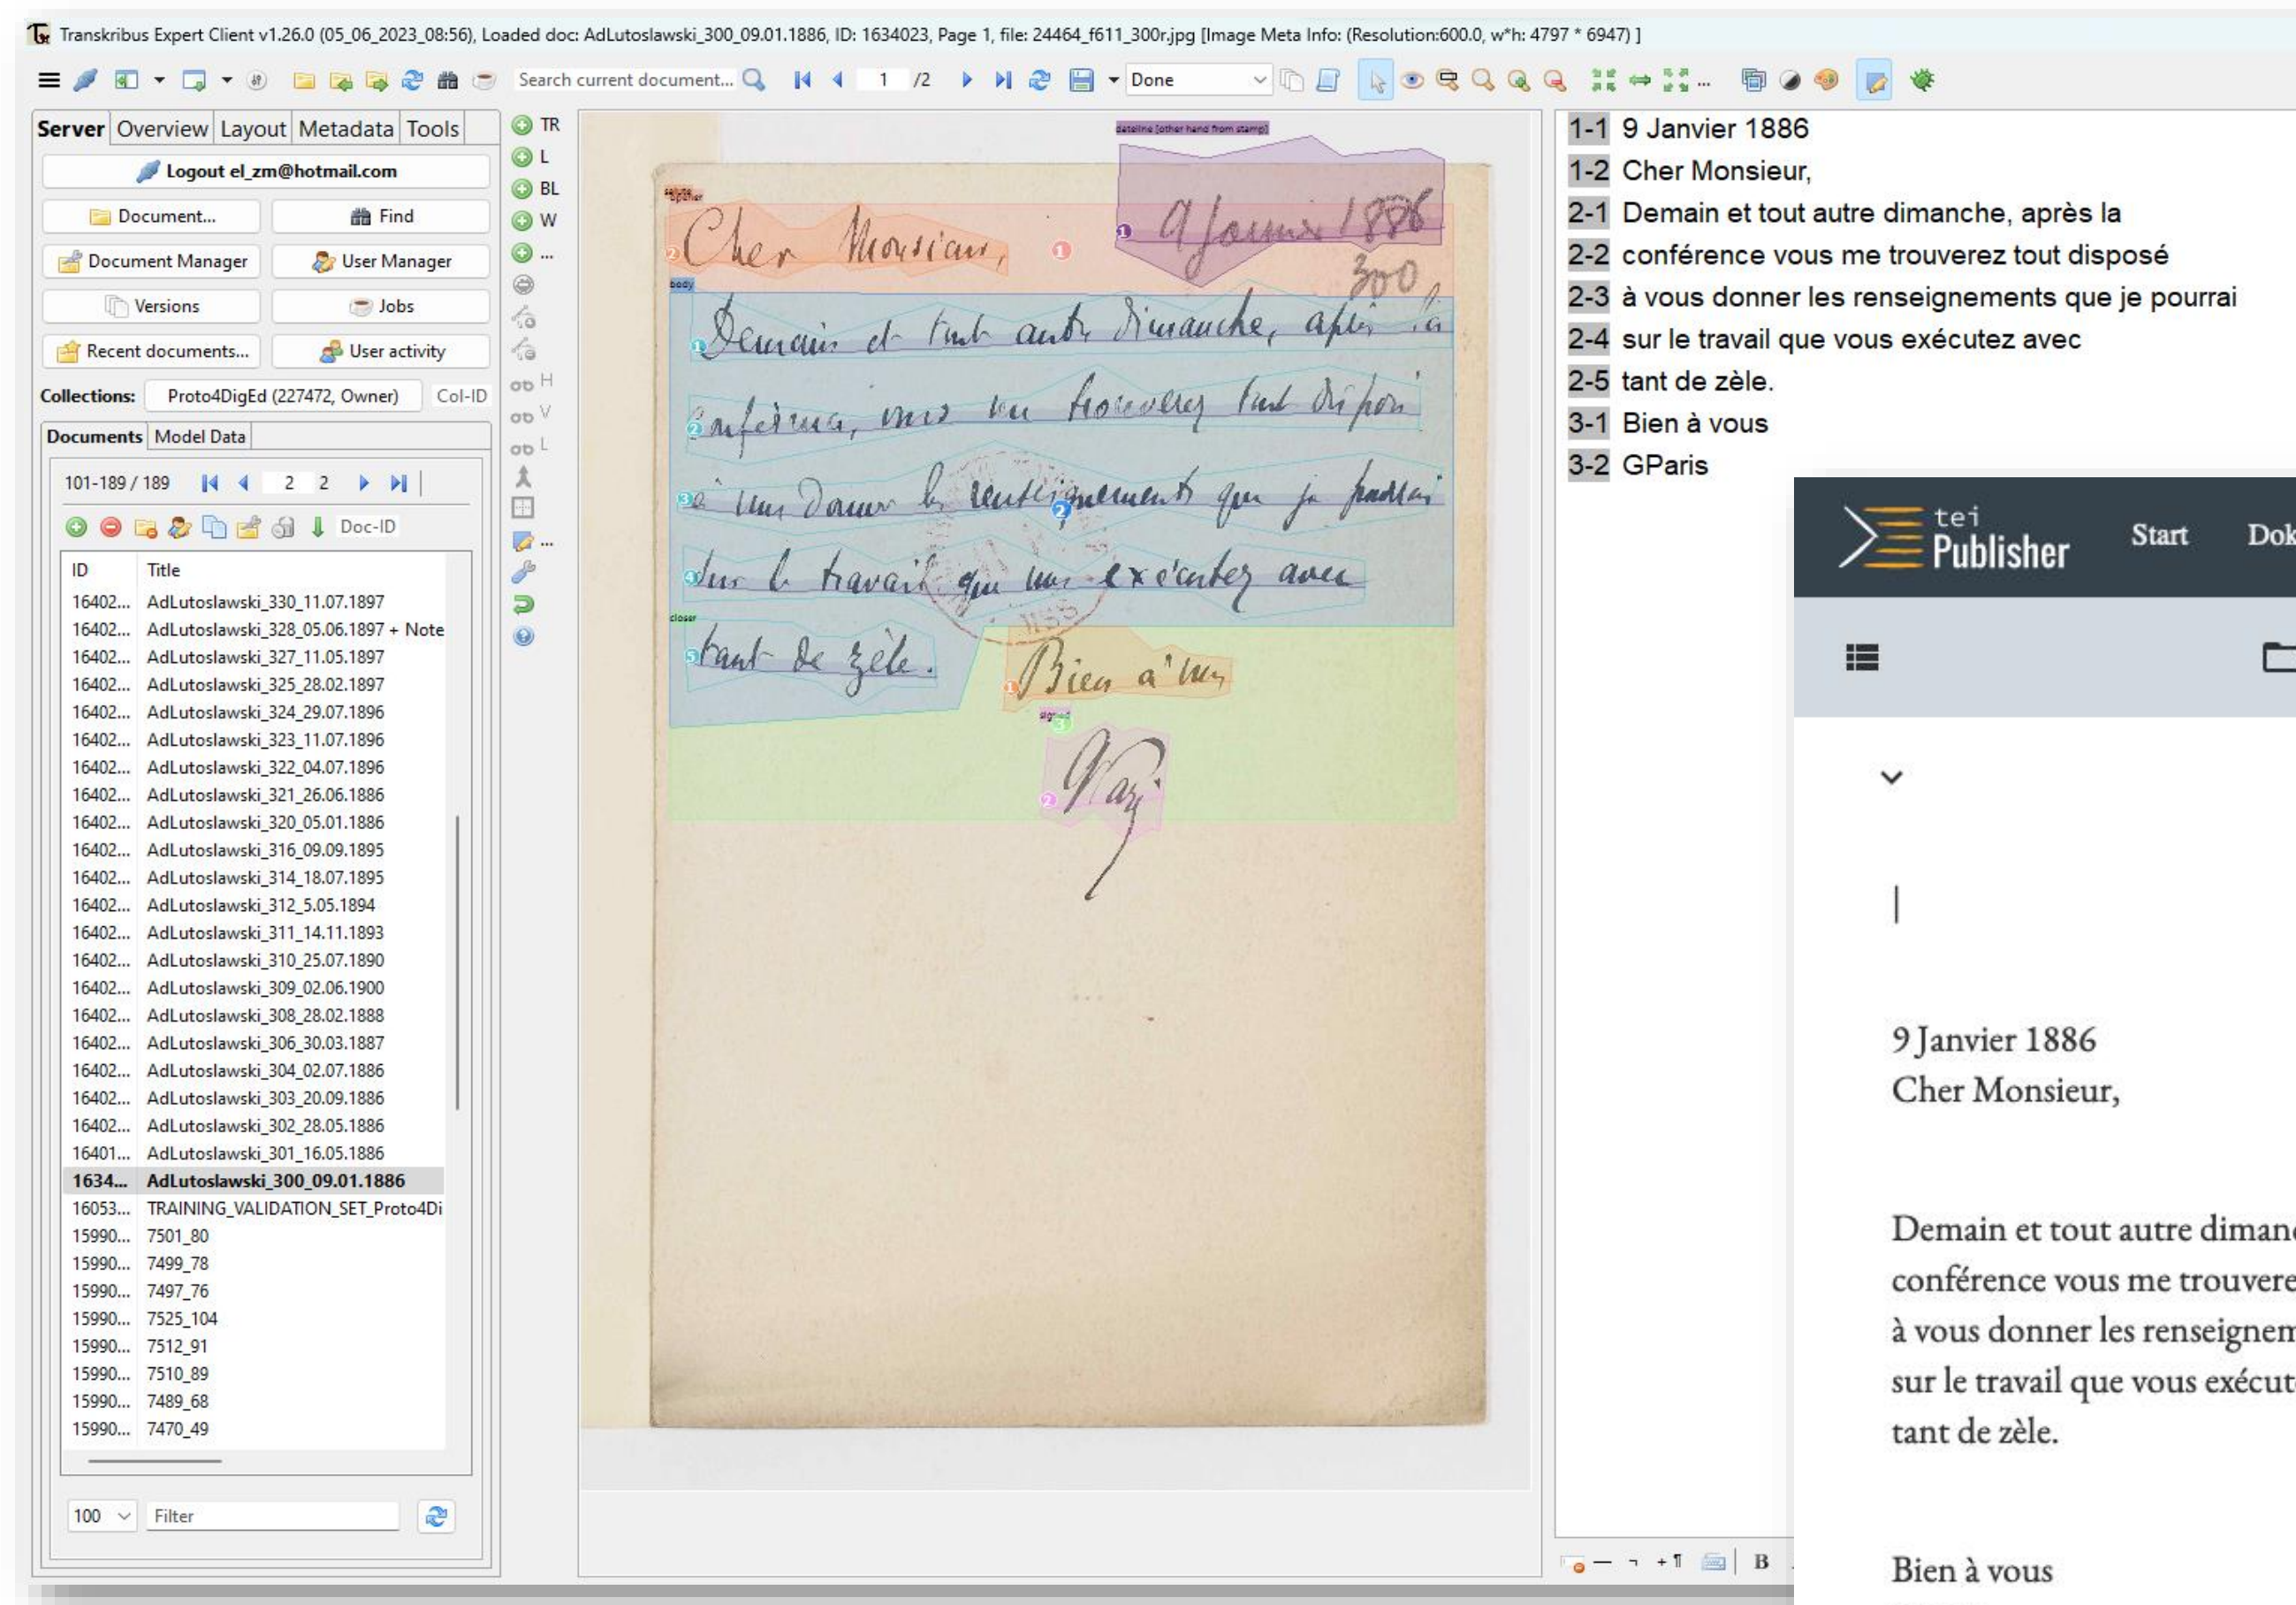 Transkribus Expert Client v1.26.0 (05_06_2023_08:56), Loaded doc: AdLutoslawski_300_09.01.1886, ID: 1634023, Page 1, file: 24464_f611_300r.jpg [Image Meta Info: (Resolution:600.0, w*h: 4797 * 6947) ]
Search current document... 1 /2 Done ...
Server Overview Layout Metadata Tools
Logout el_zm@hotmail.com
Document... Find
Document Manager User Manager
Versions Jobs
Recent documents... User activity
Collections: Proto4DigEd (227472, Owner) Col-ID
Documents Model Data
101-189 / 189 2 2
Doc-ID
ID Title
16402... AdLutoslawski_330_11.07.1897
16402... AdLutoslawski_328_05.06.1897 + Note
16402... AdLutoslawski_327_11.05.1897
16402... AdLutoslawski_325_28.02.1897
16402... AdLutoslawski_324_29.07.1896
16402... AdLutoslawski_323_11.07.1896
16402... AdLutoslawski_322_04.07.1896
16402... AdLutoslawski_321_26.06.1886
16402... AdLutoslawski_320_05.01.1886
16402... AdLutoslawski_316_09.09.1895
16402... AdLutoslawski_314_18.07.1895
16402... AdLutoslawski_312_5.05.1894
16402... AdLutoslawski_311_14.11.1893
16402... AdLutoslawski_310_25.07.1890
16402... AdLutoslawski_309_02.06.1900
16402... AdLutoslawski_308_28.02.1888
16402... AdLutoslawski_306_30.03.1887
16402... AdLutoslawski_304_02.07.1886
16402... AdLutoslawski_303_20.09.1886
16402... AdLutoslawski_302_28.05.1886
16401... AdLutoslawski_301_16.05.1886
1634... AdLutoslawski_300_09.01.1886
16053... TRAINING_VALIDATION_SET_Proto4Di
15990... 7501_80
15990... 7499_78
15990... 7497_76
15990... 7525_104
15990... 7512_91
15990... 7510_89
15990... 7489_68
15990... 7470_49
100 Filter
TR
L
BL
W
...
H
V
L
...
dateline [other hand from stamp]
9 Janvier 1886
salute
opener
Cher Monsieur,
300
body
Demain et tout autre dimanche, après la
conférence, vous me trouverez tout disposé
à vous donner les renseignements que je pourrai
sur le travail que vous exécutez avec
closer
tant de zèle.
Bien à vous
signed
GParis
1-1 9 Janvier 1886
1-2 Cher Monsieur,
2-1 Demain et tout autre dimanche, après la
2-2 conférence vous me trouverez tout disposé
2-3 à vous donner les renseignements que je pourrai
2-4 sur le travail que vous exécutez avec
2-5 tant de zèle.
3-1 Bien à vous
3-2 GParis
B
tei
Publisher Start Dok
9 Janvier 1886
Cher Monsieur,
Demain et tout autre diman
conférence vous me trouvere
à vous donner les renseignem
sur le travail que vous exécut
tant de zèle.
Bien à vous